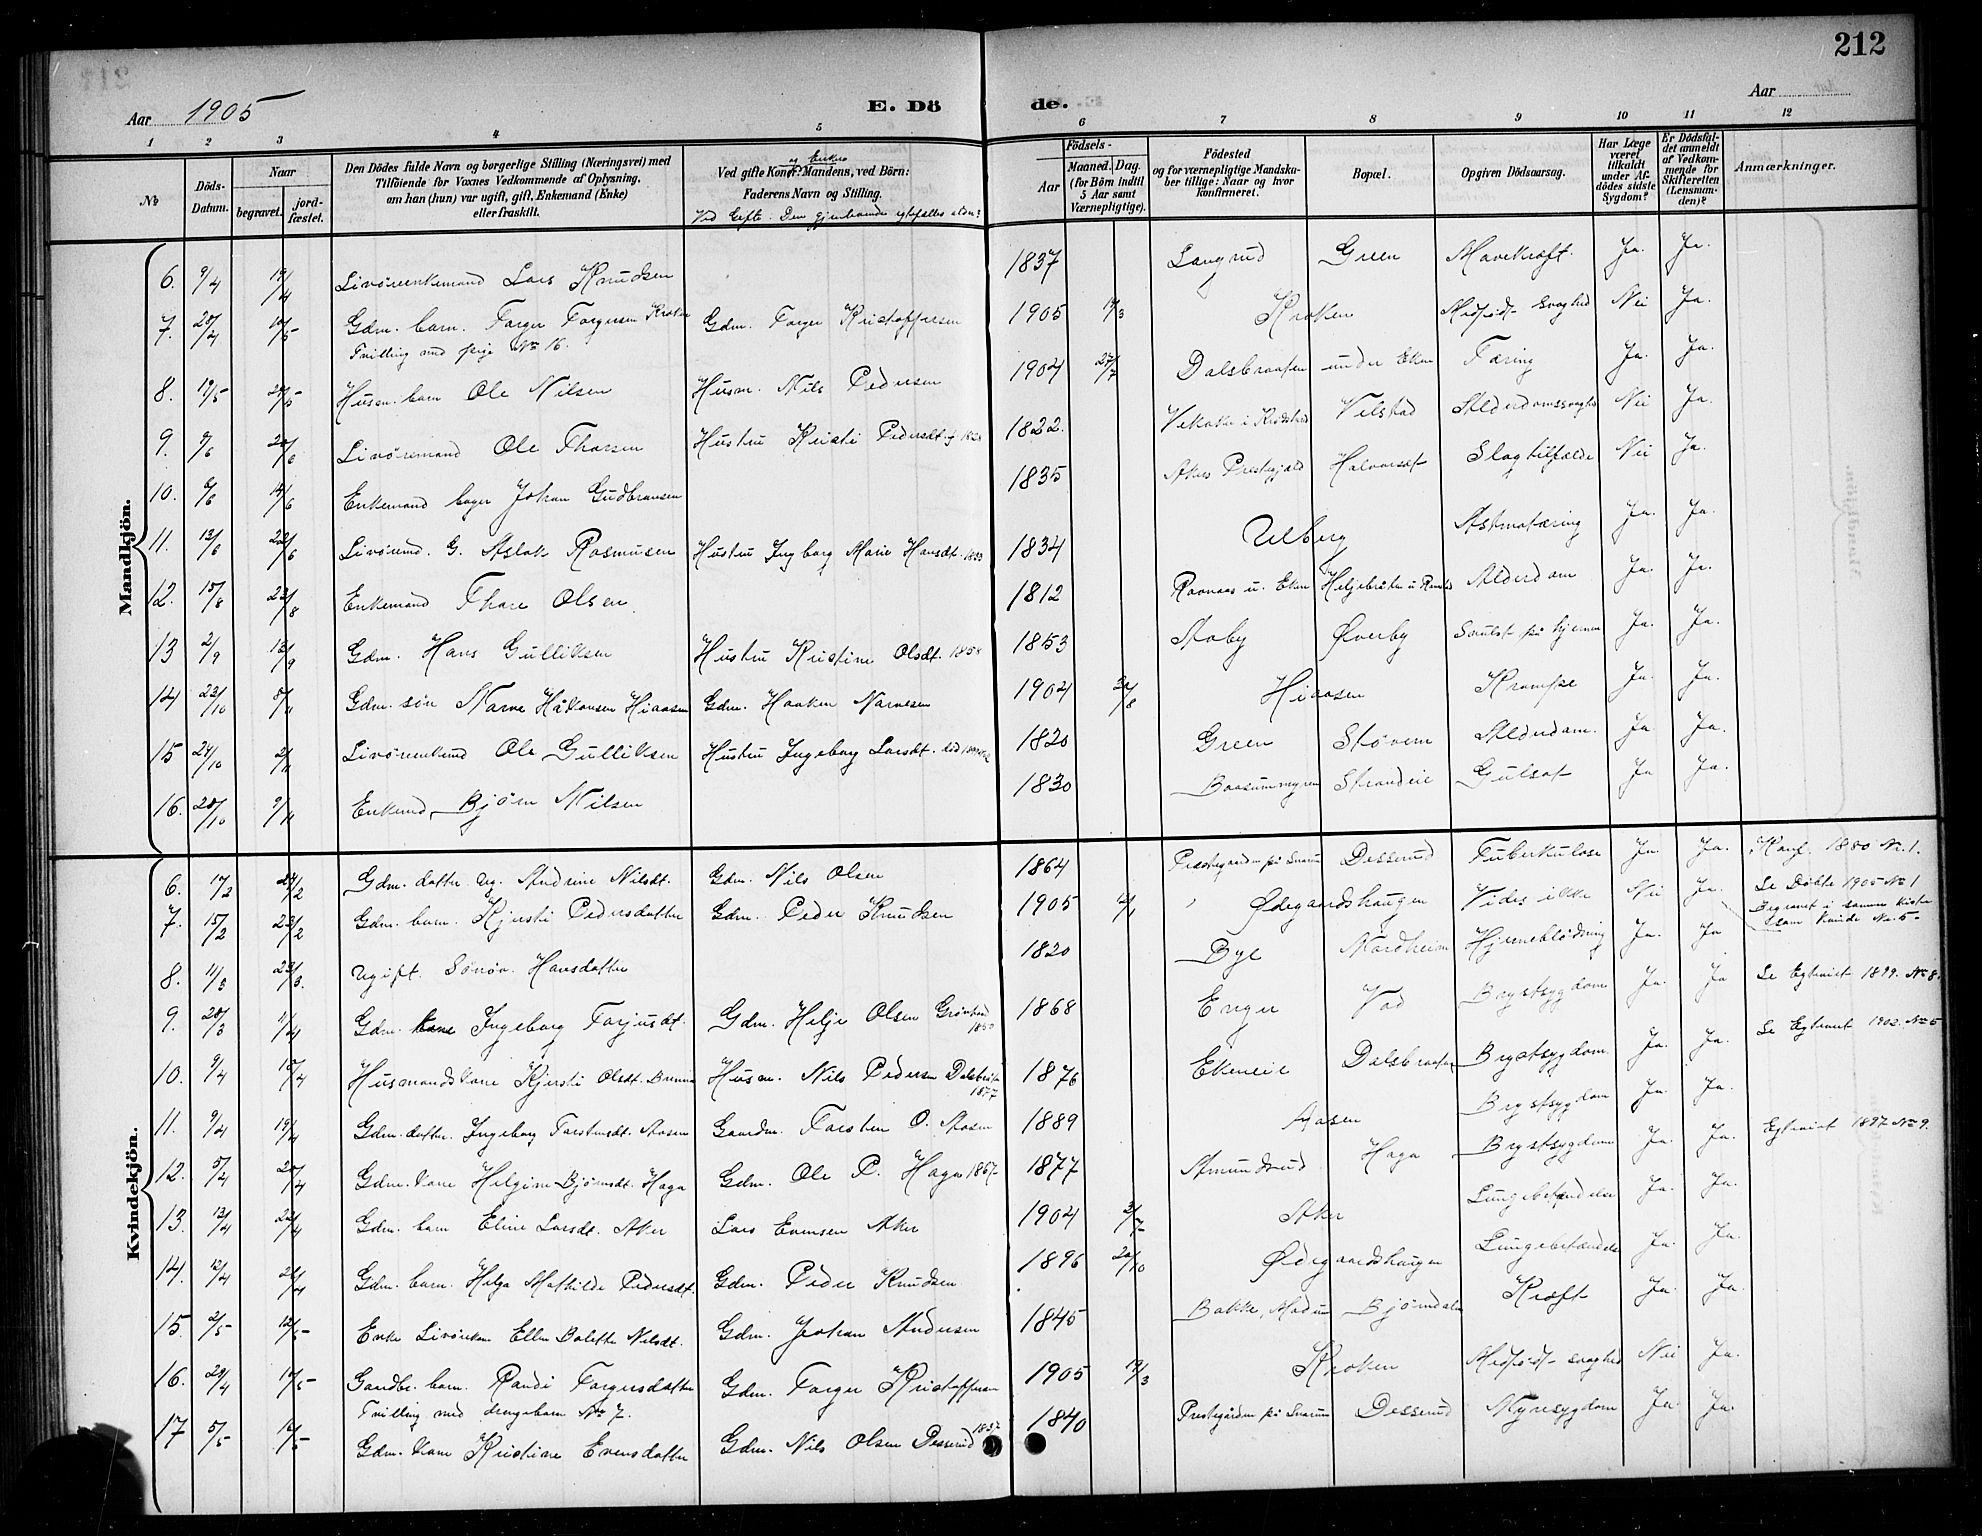 212
Aar 1905
E. Dö
de.
Aar
1 2 3 4 5 6 7 8 9 10 11 12
№
Döds-Datum.
Naar
begravet.
jord-fæstet.
Den Dödes fulde Navn og borgerlige Stilling (Næringsvei) med
Tilföiende for Voxnes Vedkommende af Oplysning,
om han (hun) var ugift, gift, Enkemand (Enke)
eller fraskilt.
og Enker
Ved gifte Koner: Mandens, ved Börn:
Faderens Navn og Stilling.
Ved Gifte: Den gjenlevende
Födsels-
Aar
Maaned. Dag.
(for Börn indtil
5 Aar samt
Værnepligtige).
Födested
og for værnepligtige Mandska-
ber tillige: Naar og hvor
konfirmeret.
Bopæl.
Opgiven Dödsaarsag.
Har Læge
været
tilkaldt
under Af-
dödes sidste
Sygdom?
Er Dödsfal-
det anmeldt
af Vedkom-
mende for
Skifteretten
(Lensman-
den)?
Anmærkninger.
Mandkjön.
6. 9/4 19/4 Livøreenkemand Lars Knudsen 1837 Langrud Green Mavekræft. Ja. Ja.
7. 28/4 Gdm. barn. Torger Torgersen Kroken Gdm. Torger Kristoffersen 1905 19/3 Kroken Medfødt svaghed Nei Ja.
Tvilling med pige No 16.
8. 19/5 Husm. barn Ole Nilsen Husm. Nils Pedersen 1904 27/7 Dalsbraaten under Eken Tæring Ja. Ja.
9. 9/6 20/6 Livøremand Ole Thorsen Hustru Kristi Pedersdt. 1822. Velstad Alderdomssvaghed Nei Ja.
10. 6/6 14/6 Enkemand bager Johan Gudbransen 1835 Akers Prestegjæld Halvorsdt Slagtilfælde Nei Ja.
11. 13/6 22/6 Livøremd. G. Aslak Rasmussen Hustru Ingborg Marie Hansdt. 1834 Ulberg Astmatæring Ja. Ja.
12. 15/8 23/8 Enkemand Thore Olsen. 1812 Ravnaas u. Eken Helgebråten u. Alderdom Ja. Ja.
13 2/9 12/9 Gdm. Hans Gulliksen Hustru Kristine Olsdt. 1858 1853 Staby Øverby Svulst på hjernen Ja. Ja.
14 23/10 8/11 Gdm. søn Narve Håkonsen Hiaasen Gdm. Haaken Narvesen 1904 Hiaasen Krampe Ja. Ja.
15 24/10 2/11 Ole Gulliksen Hustru Ingeborg Larsdt. 1820 Green Støvern Alderdom. Ja Ja.
16. 28/10 9/11 Enkemd. Bjørn Nilsen 1830 Strandeie Gulsot Ja Ja.
Kvindekjön.
6. 17/2 24/2 Gdm. datter ug. Andrine Nilsdt. Gdm. Nils Olsen 1864 Prestegaarden på Snarum Desserud Tuberkulose Ja. Ja. Konf. 1880 Nr. 1.
7. 15/2 23/2 Gdm. barn. Kjersti Pedersdatter Gdm. Peder Knudsen 1905 Ødegaardshaugen Vides ikke Nei Ja. Se Døbte 1905 No 1
Begravet i samme kiste
som kvinde No. 5.
8. 11/3 23/3. Ugift. Sønøv. Hansdatter 1820 Bye Nordheim Hjerneblødning Ja. Ja
9. 28/3 11/4 Gdm. kone Ingeborg Torjusdt. Gdm. Helje Olsen Grønlund 1850 1868 Enger Vad Brystsygdom Ja. Ja Se Egteviet 1899. No 8.
10. 9/4 18/4 Husmandskone Kjersti Olsdt. Husm. Nils Pedersen Dalsbråten 1877 1876 Ekeneie Dalsbraaten Brystsygdom. Ja. Ja. Se Egteviet 1902. No 5
11. 9/4 19/4 Gdm. datter. Ingeborg Torstensdt. Aasen Gaardm. Torsten O. Aasen 1889 Aasen Brystsygdom Ja. Ja.
12. 5/4 20/4 Gdm. kone Helgine Bjørnsdt. Haga Gdm. Ole P. Haga 1867 1877 Amundrud Haga Brystsygdom Ja. Ja. Egteviet 1897 No 9.
13. 13/4 22/4 Gdm. barn Eline Larsdt. Aker Lars Evensen Aker 1904 Aker Lungebetændelse Ja. Ja.
14. 12/4 26/4 Gdm. barn. Helga Mathilde Pedersdt. Gdm. Peder Knudsen 1896 20/10 Ødegaardshaugen Lungebetændelse Ja. Ja.
15. 2/5 12/5 Enke Livørekone Ellen Bolette Nilsdt. Gdm. Johan Andersen 1845 Bakke, Modum Bjørndalen Kræft Ja. Ja.
16. 29/4 Gardbr. barn. Randi Torgersdatter Gdm. Torger Kristoffersen 1905 19/3 Kroken Medfødt svaghed Nei Ja.
Tvilling med drengebarn No 7.
17 5/5 Gdm. kone Kristine Evensdatter Gdm. Nils Olsen Desserud 1837 1840 Prestegården på Snarum Desserud Nyresygdom Ja Ja.